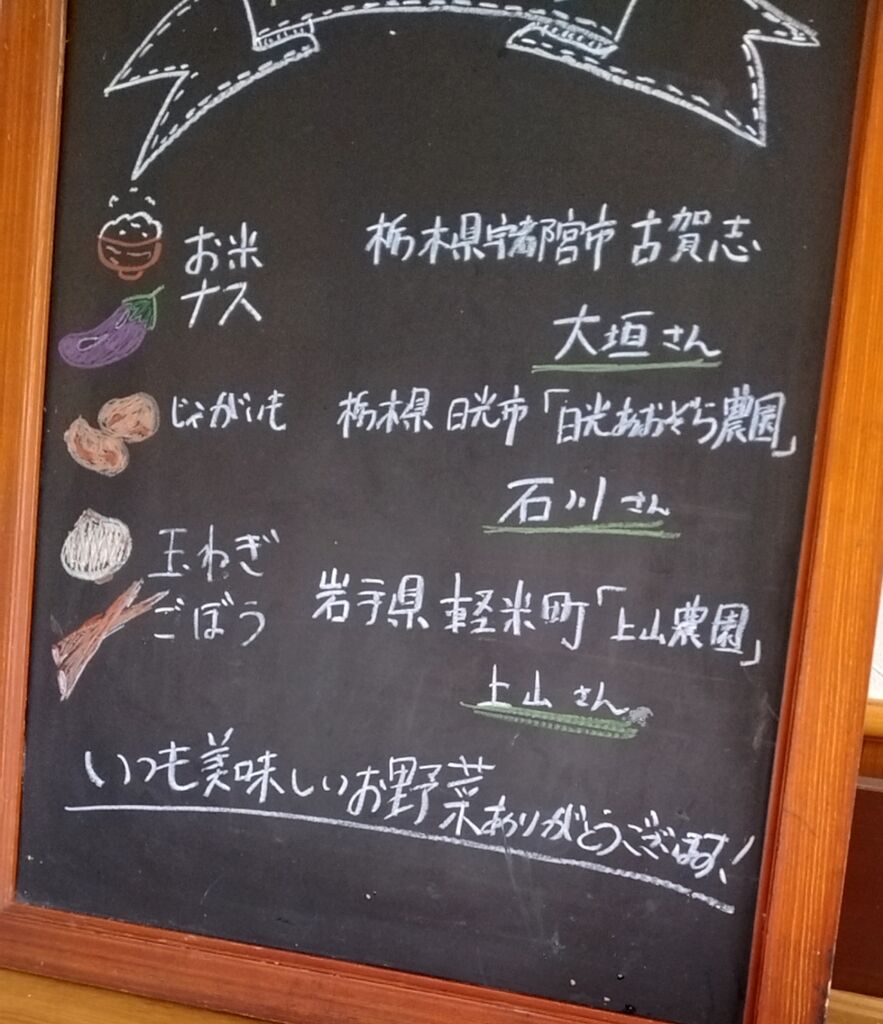 お米 栃木県宇都宮市 古賀志
ナス
大垣さん
じゃがいも 栃木県 日光市「日光あおぞら農園」
石川さん
玉ねぎ
ごぼう 岩手県 軽米町「上山農園」
上山さん
いつも美味しいお野菜ありがとうございます!